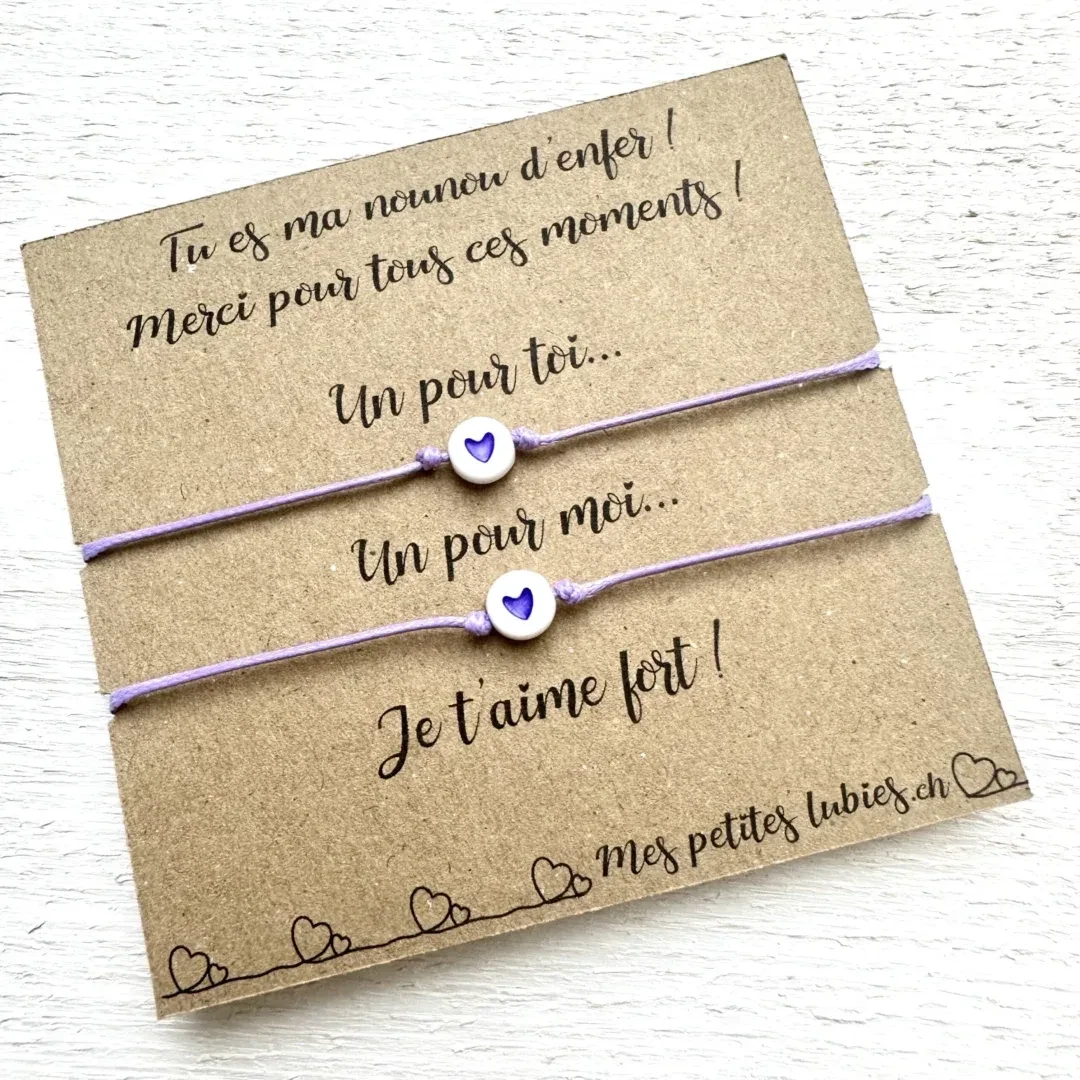 Tu es ma nounou d'enfer !
Merci pour tous ces moments !
Un pour toi...
Un pour moi...
Je t'aime fort !
Mes petites lubies.ch